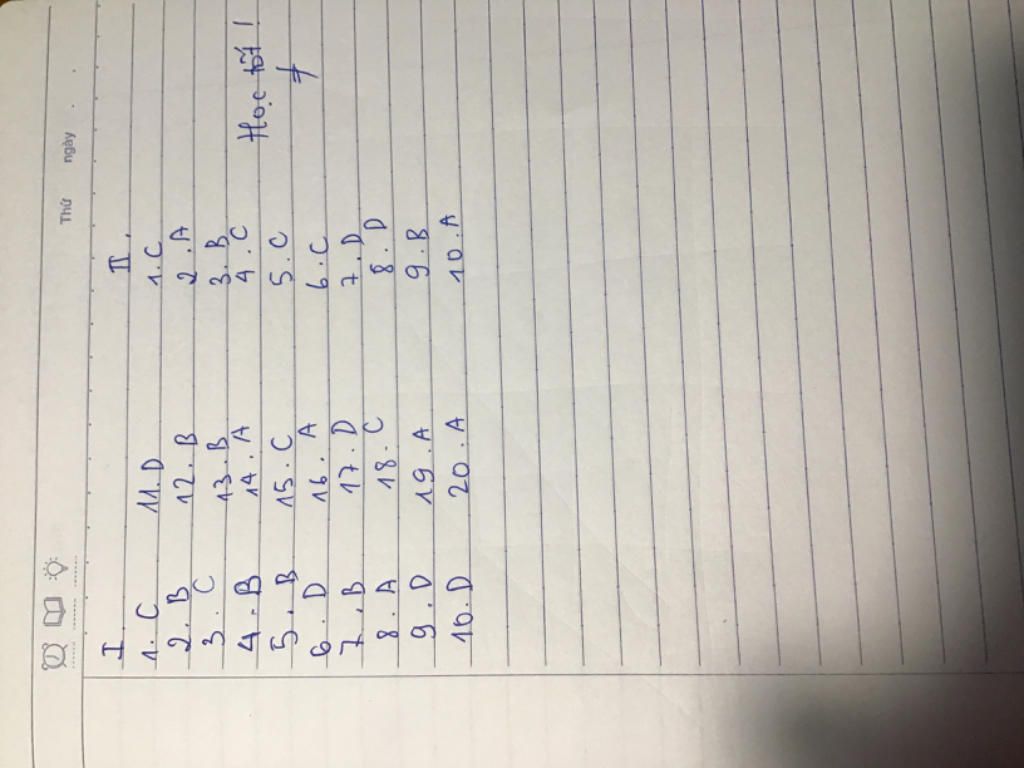 Thứ ngày
I II.
1. C 11. D 1. C
2. B 12. B 2. A
3. C 13. B 3. B
4. B 14. A 4. C Học tốt!
5. B 15. C 5. C
6. D 16. A 6. C
7. B 17. D 7. D
8. A 18. C 8. D
9. D 19. A 9. B
10. D 20. A 10. A